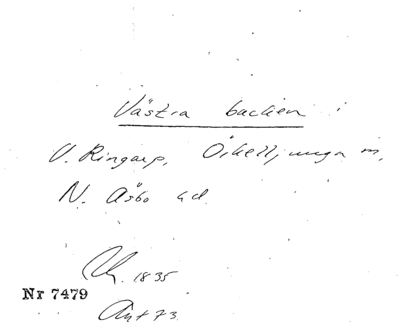 Västra backen i
V. Ringarp, Örkelljunga m,
N. Åsbo hd.
1835
Nr 7479
Ant 73.